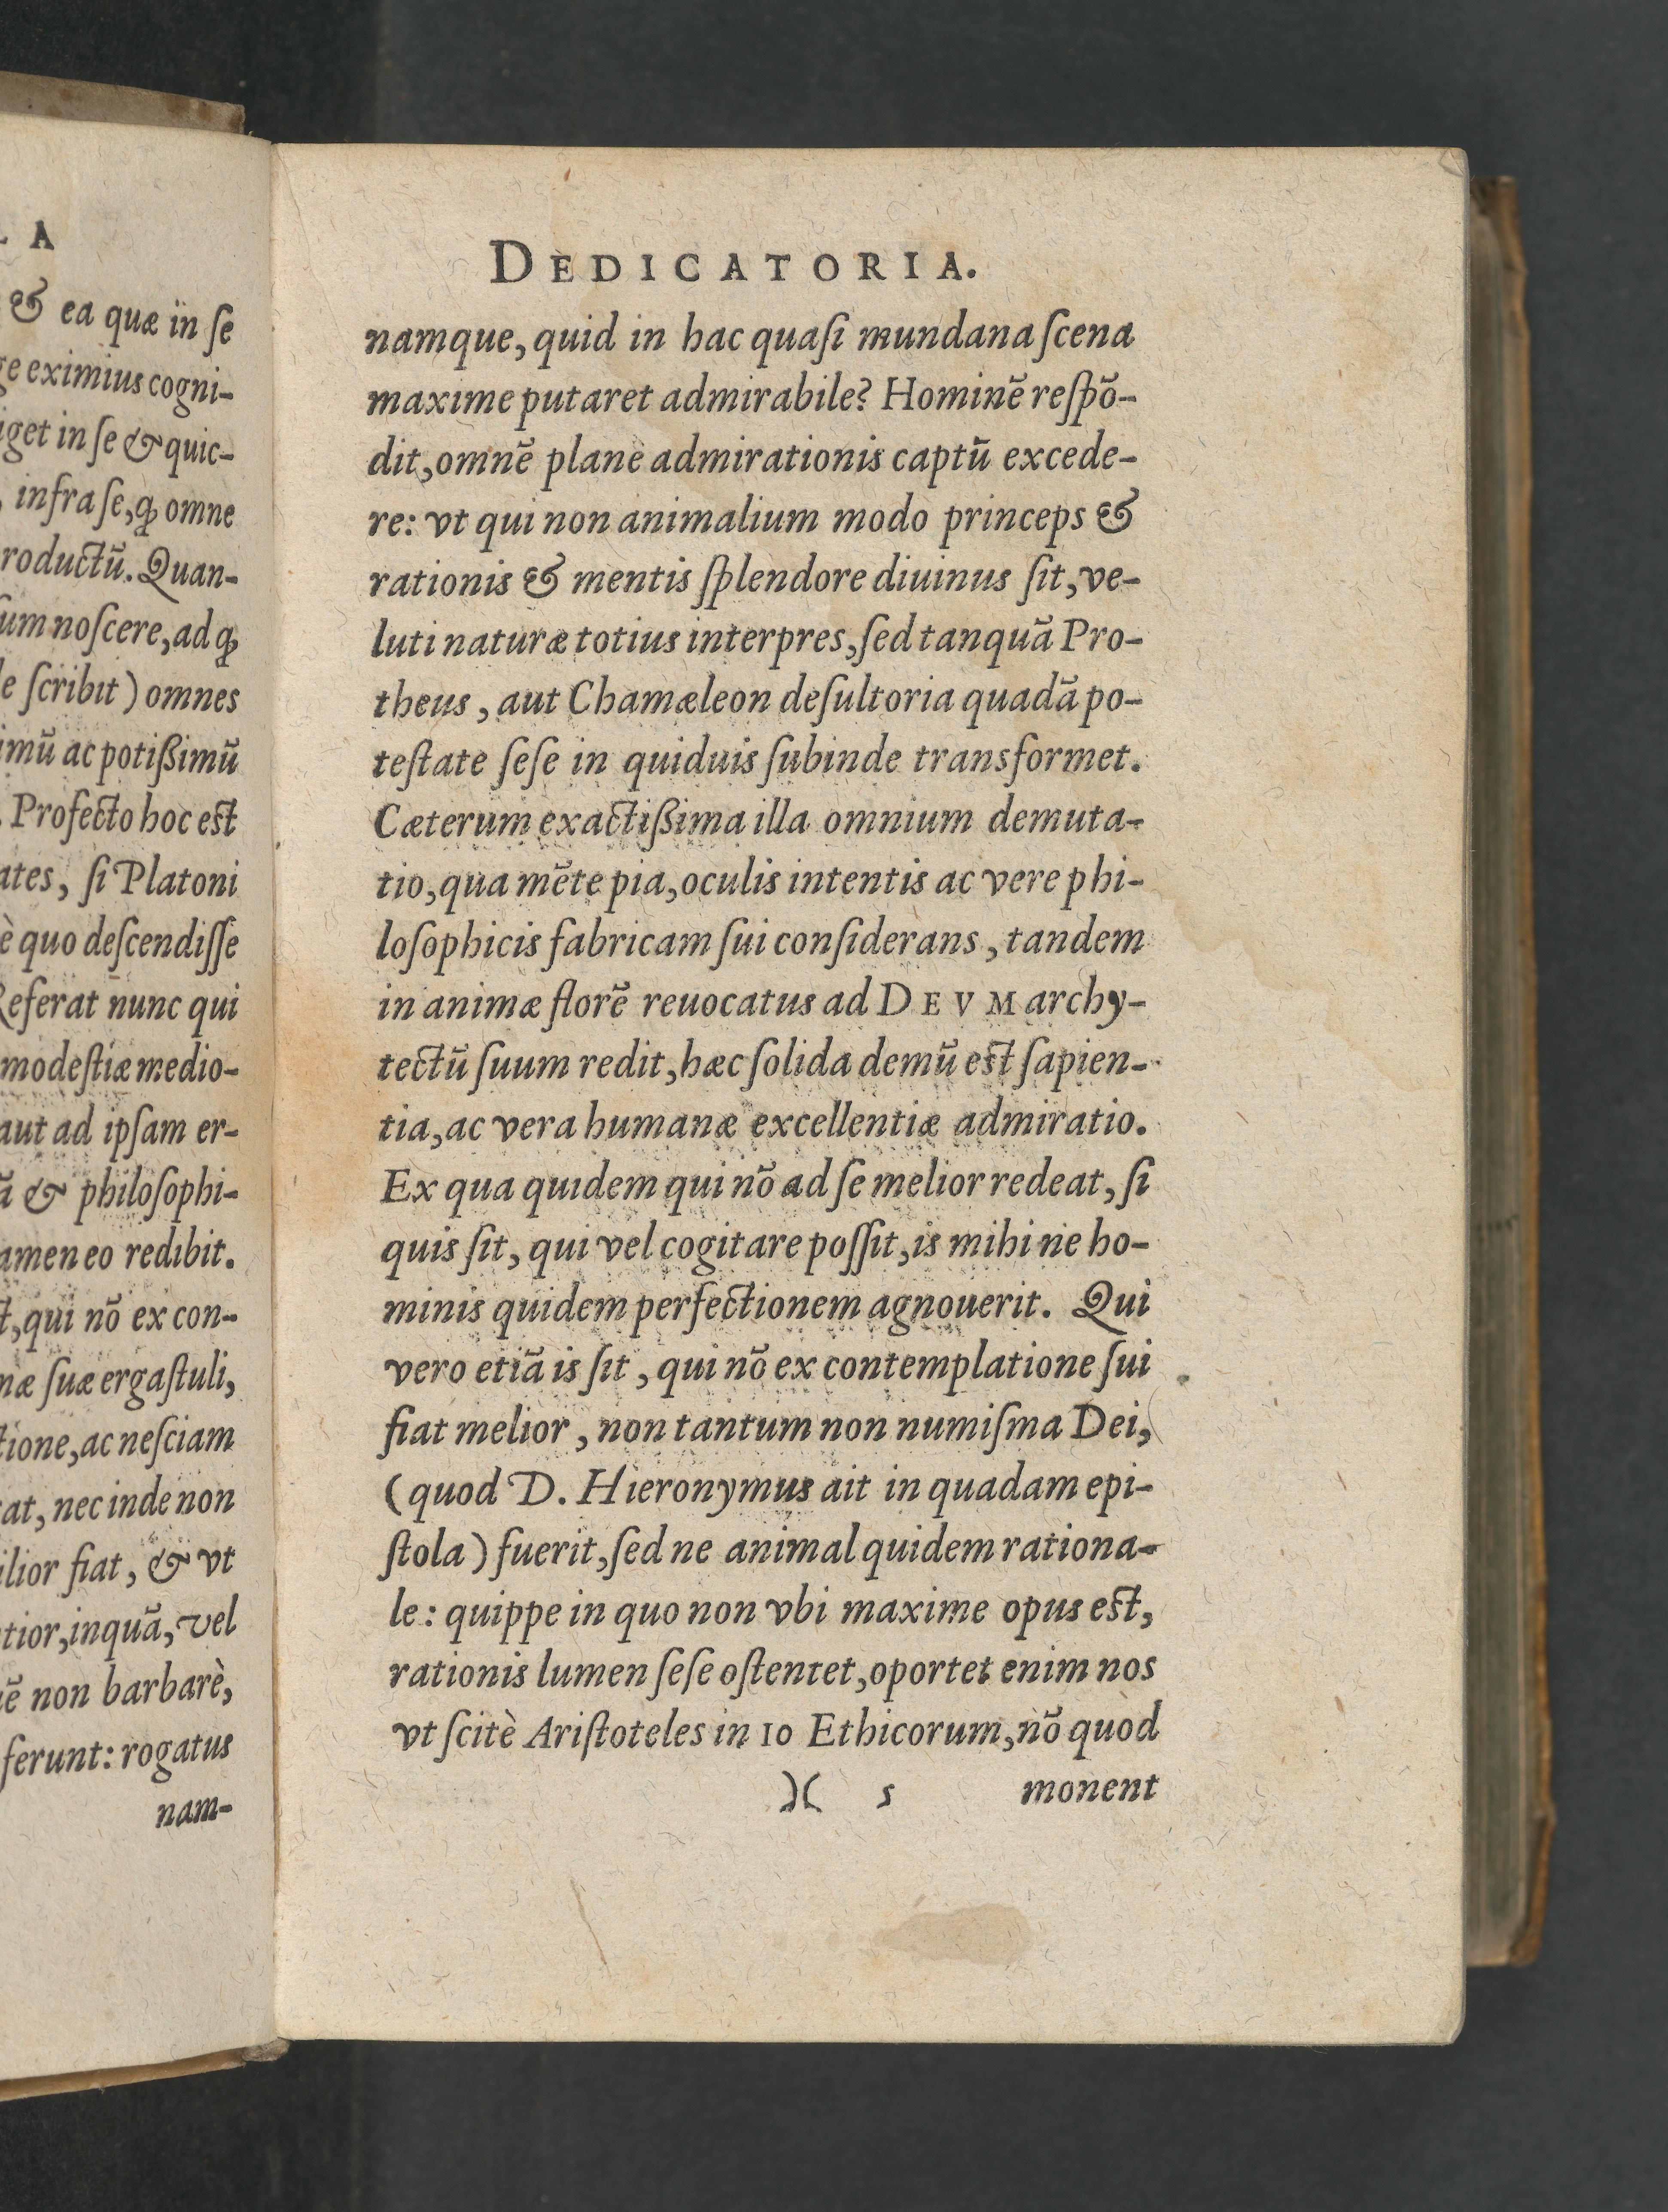 A
& ea quæ in ſe
eximius cogni-
in ſe & quic-
infra ſe, ꝙ omne
Quan-
noſcere, ad ꝙ
ſcribit) omnes
ac potißimũ
Profecto hoc est
ſi Platoni
quo deſcendiſſe
nunc qui
modeſtiæ medio-
aut ad ipſam er-
& philoſophi-
eo redibit.
qui nõ ex con-
ſuæ ergaſtuli,
ac neſciam
nec inde non
fiat, & vt
inquã, vel
non barbarè,
ferunt: rogatus
nam-
DEDICATORIA.
namque, quid in hac quaſi mundana ſcena
maxime putaret admirabile? Hominẽ reſpõ-
dit, omnẽ planè admirationis captũ excede-
re: vt qui non animalium modo princeps &
rationis & mentis ſplendore diuinus ſit, ve-
luti naturæ totius interpres, ſed tanquã Pro-
theus, aut Chamæleon deſultoria quadã po-
teſtate ſeſe in quiduis ſubinde transformet.
Cæterum exactißima illa omnium demuta-
tio, qua mẽte pia, oculis intentis ac vere phi-
loſophicis fabricam ſui conſiderans, tandem
in animæ florẽ reuocatus ad DEVM archy-
tectũ ſuum redit, hæc ſolida demũ est ſapien-
tia, ac vera humanæ excellentiæ admiratio.
Ex qua quidem qui nõ ad ſe melior redeat, ſi
quis ſit, qui vel cogitare poſſit, is mihi ne ho-
minis quidem perfectionem agnouerit. Qui
vero etiã is ſit, qui nõ ex contemplatione ſui
fiat melior, non tantum non numiſma Dei,
(quod D. Hieronymus ait in quadam epi-
ſtola) fuerit, ſed ne animal quidem rationa-
le: quippe in quo non vbi maxime opus est,
rationis lumen ſeſe oſtentet, oportet enim nos
vt ſcitè Ariſtoteles in 10 Ethicorum, nõ quod
)( 5 monent